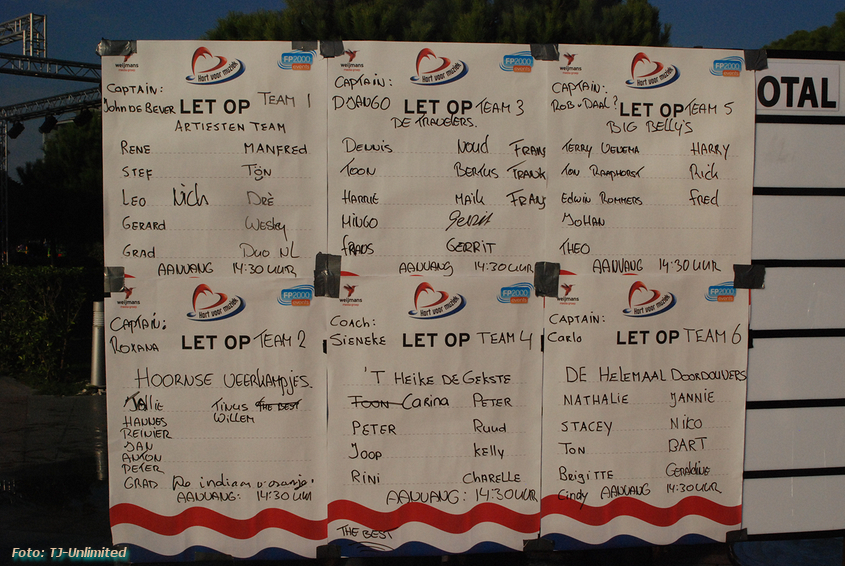 weijmans
Hart voor muziek
FP2000
events
CAPTAIN:
JOHN DE BEVER
LET OP TEAM 1
ARTIESTEN TEAM
RENE MANFRED
STEF TÖN
LEO Nick DRÈ
GERARD WESLEY
GRAD DUO NL
AANVANG 14:30 UUR
weijmans
Hart voor muziek
FP2000
events
CAPTAIN:
DJANGO
LET OP TEAM 3
DE TRAVELERS.
DENNIS NOUD FRANS
TOON BERTUS FRANK
HARRIE MAIK FRANS
MINGO Gerrit
FRANS GERRIT
AANVANG 14:30 UUR
weijmans
Hart voor muziek
FP2000
events
CAPTAIN:
ROB V DAAL?
LET OP TEAM 5
BIG BELLY'S
TERRY VENEMA HARRY
TON RAAPHORST Rick
EDWIN ROMMERS FRED
JOHAN
THEO
AANVANG 14:30 UUR
OTAL
weijmans
Hart voor muziek
FP2000
events
CAPTAIN:
ROXANA
LET OP TEAM 2
HOORNSE VEERKAMPJES.
JALLIE TINUS THE BEST
HANNES WILLEM
REINIER
JAN
ANTON
PETER
GRAD De indiaan v oranje!
AANVANG: 14:30 UUR
weijmans
Hart voor muziek
FP2000
events
COACH:
SIENEKE
LET OP TEAM 4
'T HEIKE DE GEKSTE
TOON CARINA PETER
PETER RUUD
JOOP KELLY
RINI CHARELLE
AANVANG: 14:30 UUR
THE BEST
weijmans
Hart voor muziek
FP2000
events
CAPTAIN:
CARLO
LET OP TEAM 6
DE HELEMAAL DOORDOUWERS
NATHALIE JANNIE
STACEY NICO
TON BART
BRIGITTE GERALDINE
CINDY AANVANG 14:30 UUR
Foto: TJ-Unlimited